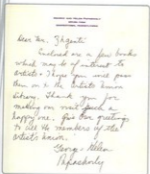 Dear Mr. Zhgenti
Enclosed are a few books
which may be of interest to
artists. Hope you will pass
them on to the Artists Union
library. Thank you for
making our visit such a
happy one. Give our greetings
to all the members of the
artist's union.
George & Helen
Papashvily